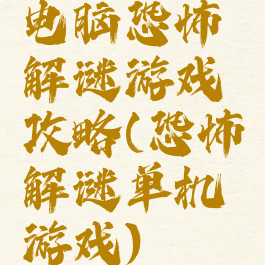 电脑恐怖
解谜游戏
攻略(恐怖
解谜单机
游戏)